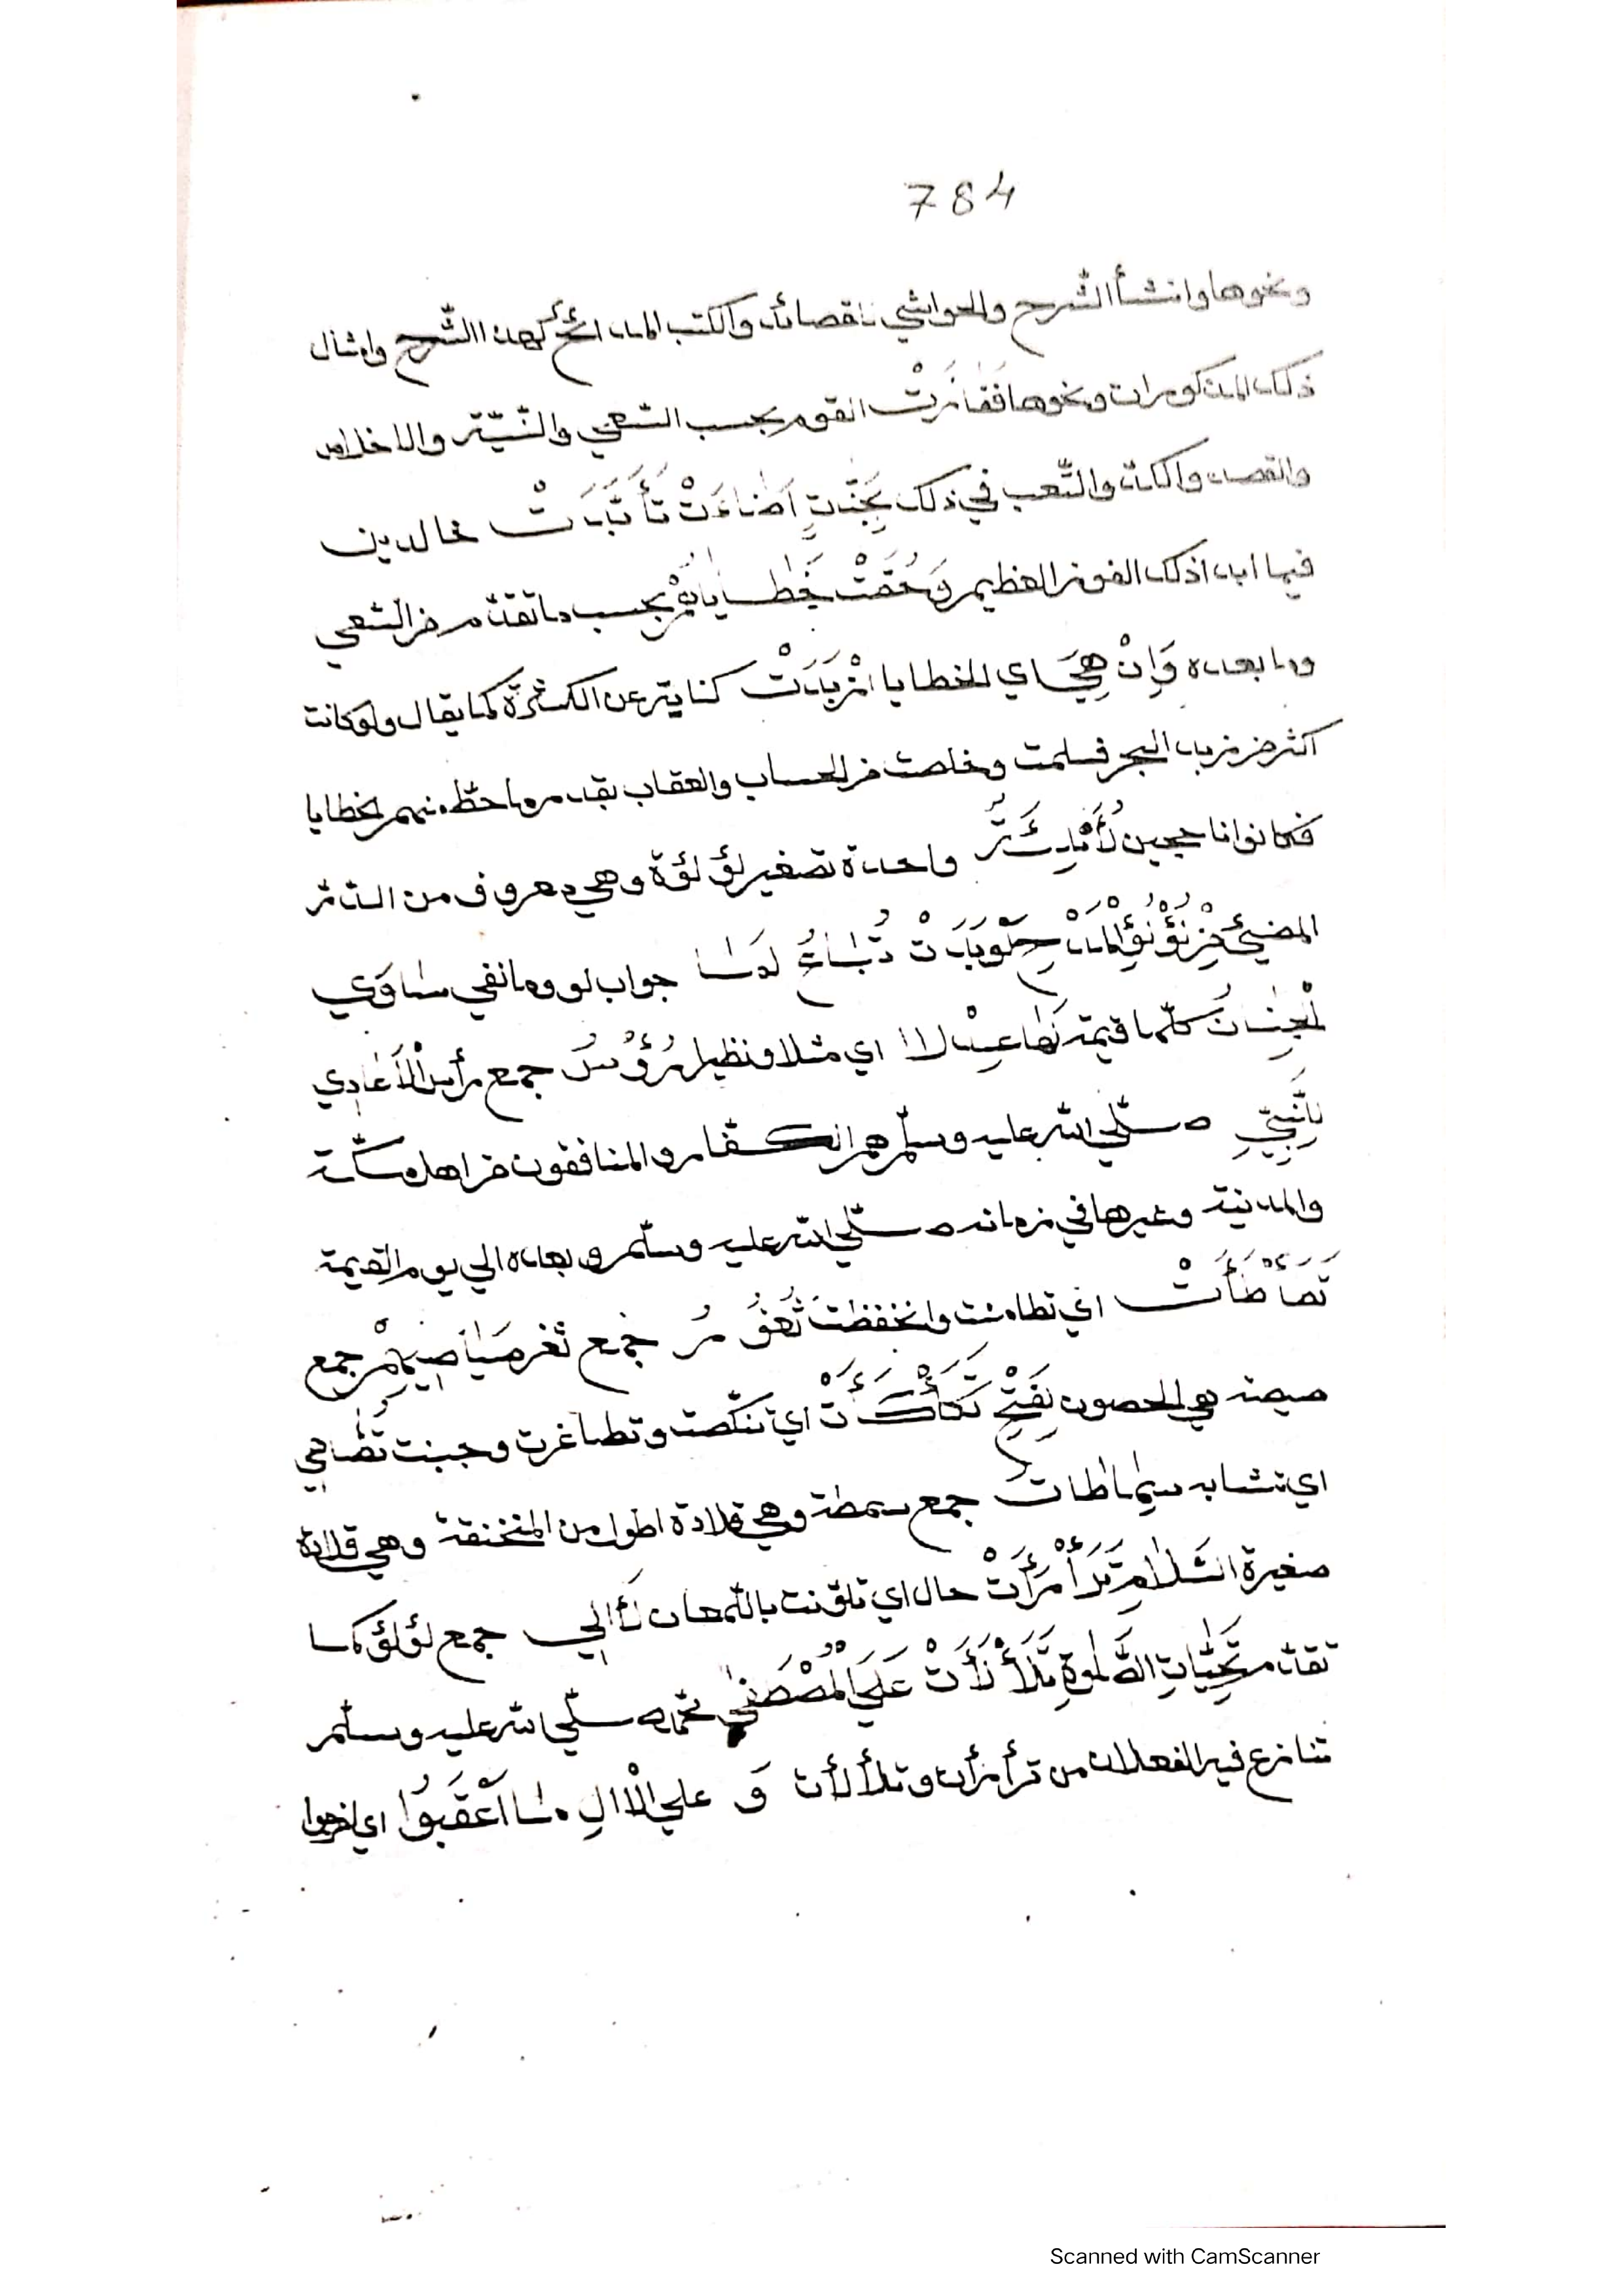 784
ونحوها وانشأ الشّرح والحواشي للقصائد والكتب المدائح كهذا الشّرح وامثال
ذلك المذكورات ونحوها فَفَازَتْ القوم بحسب السّعي والنّيّة والاخلاص
والقصد والكدّ والتّعب في ذلك بِجَنَّتٍ اَضَاءَتْ تَأَبَّدَتْ خالدين
فيها ابدا ذلك الفوز العظيم وَحُقَّتْ خَطَايَاهُمْ بحسب ما تقدّم من السّعي
وما بعده وَاِنْ هِيَ اي الخطايا اَزْبَدَتْ كناية عن الكثرة كما يقال ولو كانت
اكثر من زبد البحر فسلمت وخلصت من الحساب والعقاب بقدر ما حطّ منهم الخطايا
فكانوا ناجحين واحدة تصغير لؤلؤة وهي معروف من الدّرّ
المضيئ جواب لو وما نفي سَاوَي
الْجِنَانُ كلّها قيمة لَهَا عِدْلًا اي مثلا ونظيرا رُؤُسُ جمع رأس الْاَعَادِي
لِلنَّبِيِّ صلّي الله عليه وسلّم هم الكفّار والمنافقون من اهل مكّة
والمدينة وغيرها في زمانه صلّي الله عليه وسلّم وبعده الي يوم القيمة
تَطَأْطَأَتْ اي تطامنت وانخفظت ثُغُورُ جمع ثغر صَيَاصِيهِمْ جمع
صيصة هي الحصون بِفَتْحٍ تَكَأْكَأَتْ اي تنكّصت وتصاغرت وجبنت تُضَاهِي
اي تشابه سِمَاطَاتُ جمع سمطة وهي قلادة اطول من المخنقة وهي قلادة
صغيرة السَّلَامِ تَرَأْرَأَتْ حال اي تلوّنت باللّمعان لَأَالِي جمع لؤلؤ كما
تقدّم تَحِيَّاتِ الصَّلوةِ تَلَأْلَأَتْ عَلَي الْمُصْطَفٰي محمّد صلّي الله عليه وسلّم
تنازع فيه الفعلان من ترأرأت وتلألأت وَ علي الْاٰلِ مَا اَعْقَبُوا
Scanned with CamScanner